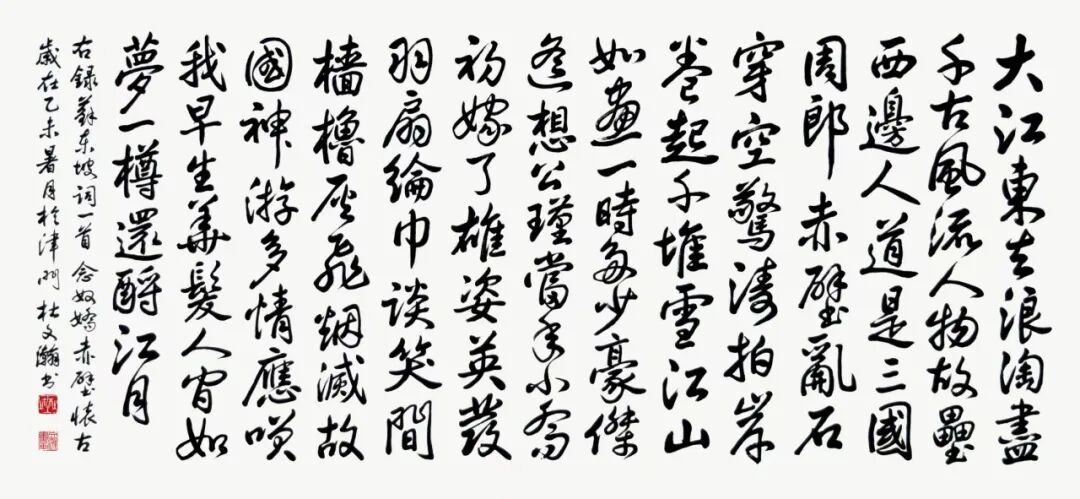 大江東去浪淘盡
千古風流人物故壘
西邊人道是三國
周郎赤壁亂石
穿空驚濤拍岸
卷起千堆雪江山
如畫一時多少豪傑
遙想公瑾當年小喬
初嫁了雄姿英發
羽扇綸巾談笑間
檣櫓灰飛烟滅故
國神游多情應笑
我早生華髮人間如
夢一樽還酹江月
右錄蘇東坡詞一首 念奴嬌赤壁懷古
歲在乙未暑月於津門 杜文瀚書